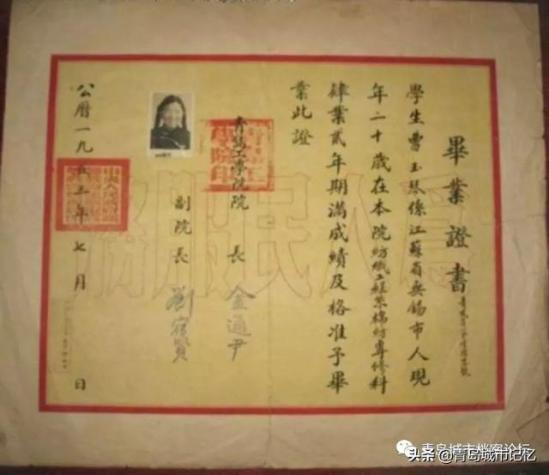 畢業證書
學生曹玉琴係江蘇省無錫市人現
年二十歲在本院紡織工程系棉紡專修科
肄業貳年期滿成績及格准予畢
業此證
青島工學院院長
金通尹
副院長
劉宿賢
公曆一九五三年七月 日
為人民服務
青島城市档案论坛
头条@青岛城市记忆